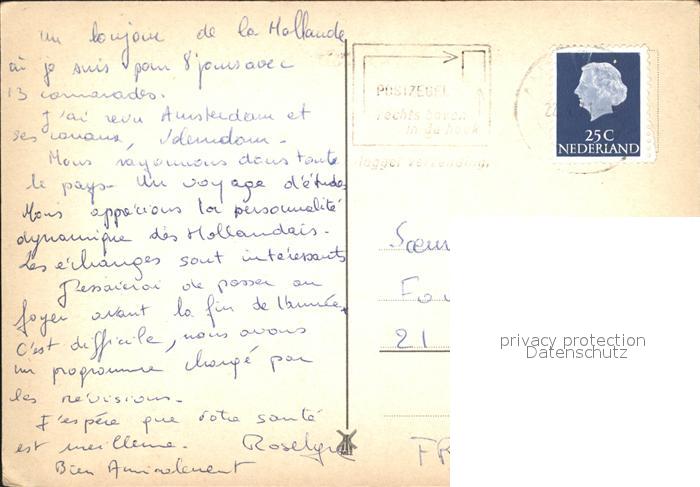 un bonjour de la Hollande
où je suis pour 8 jours avec
13 camarades.
J'ai revu Amsterdam et
ses canaux, Volendam.
Nous rayonnons dans toute
le pays. Un voyage d'étude.
Nous apprécions la personnalité
dynamique des Hollandais.
Les échanges sont intéressants
J'essaierai de passer au
foyer avant la fin de l'année,
C'est difficile, nous avons
un programme chargé par
les révisions.
J'espère que votre santé
est meilleure. Roselyne
Bien Amicalement
POSTZEGEL
rechts boven
in de hoek
verzending.
25 C
NEDERLAND
Soeur
Fo
21
FR
privacy protection
Datenschutz